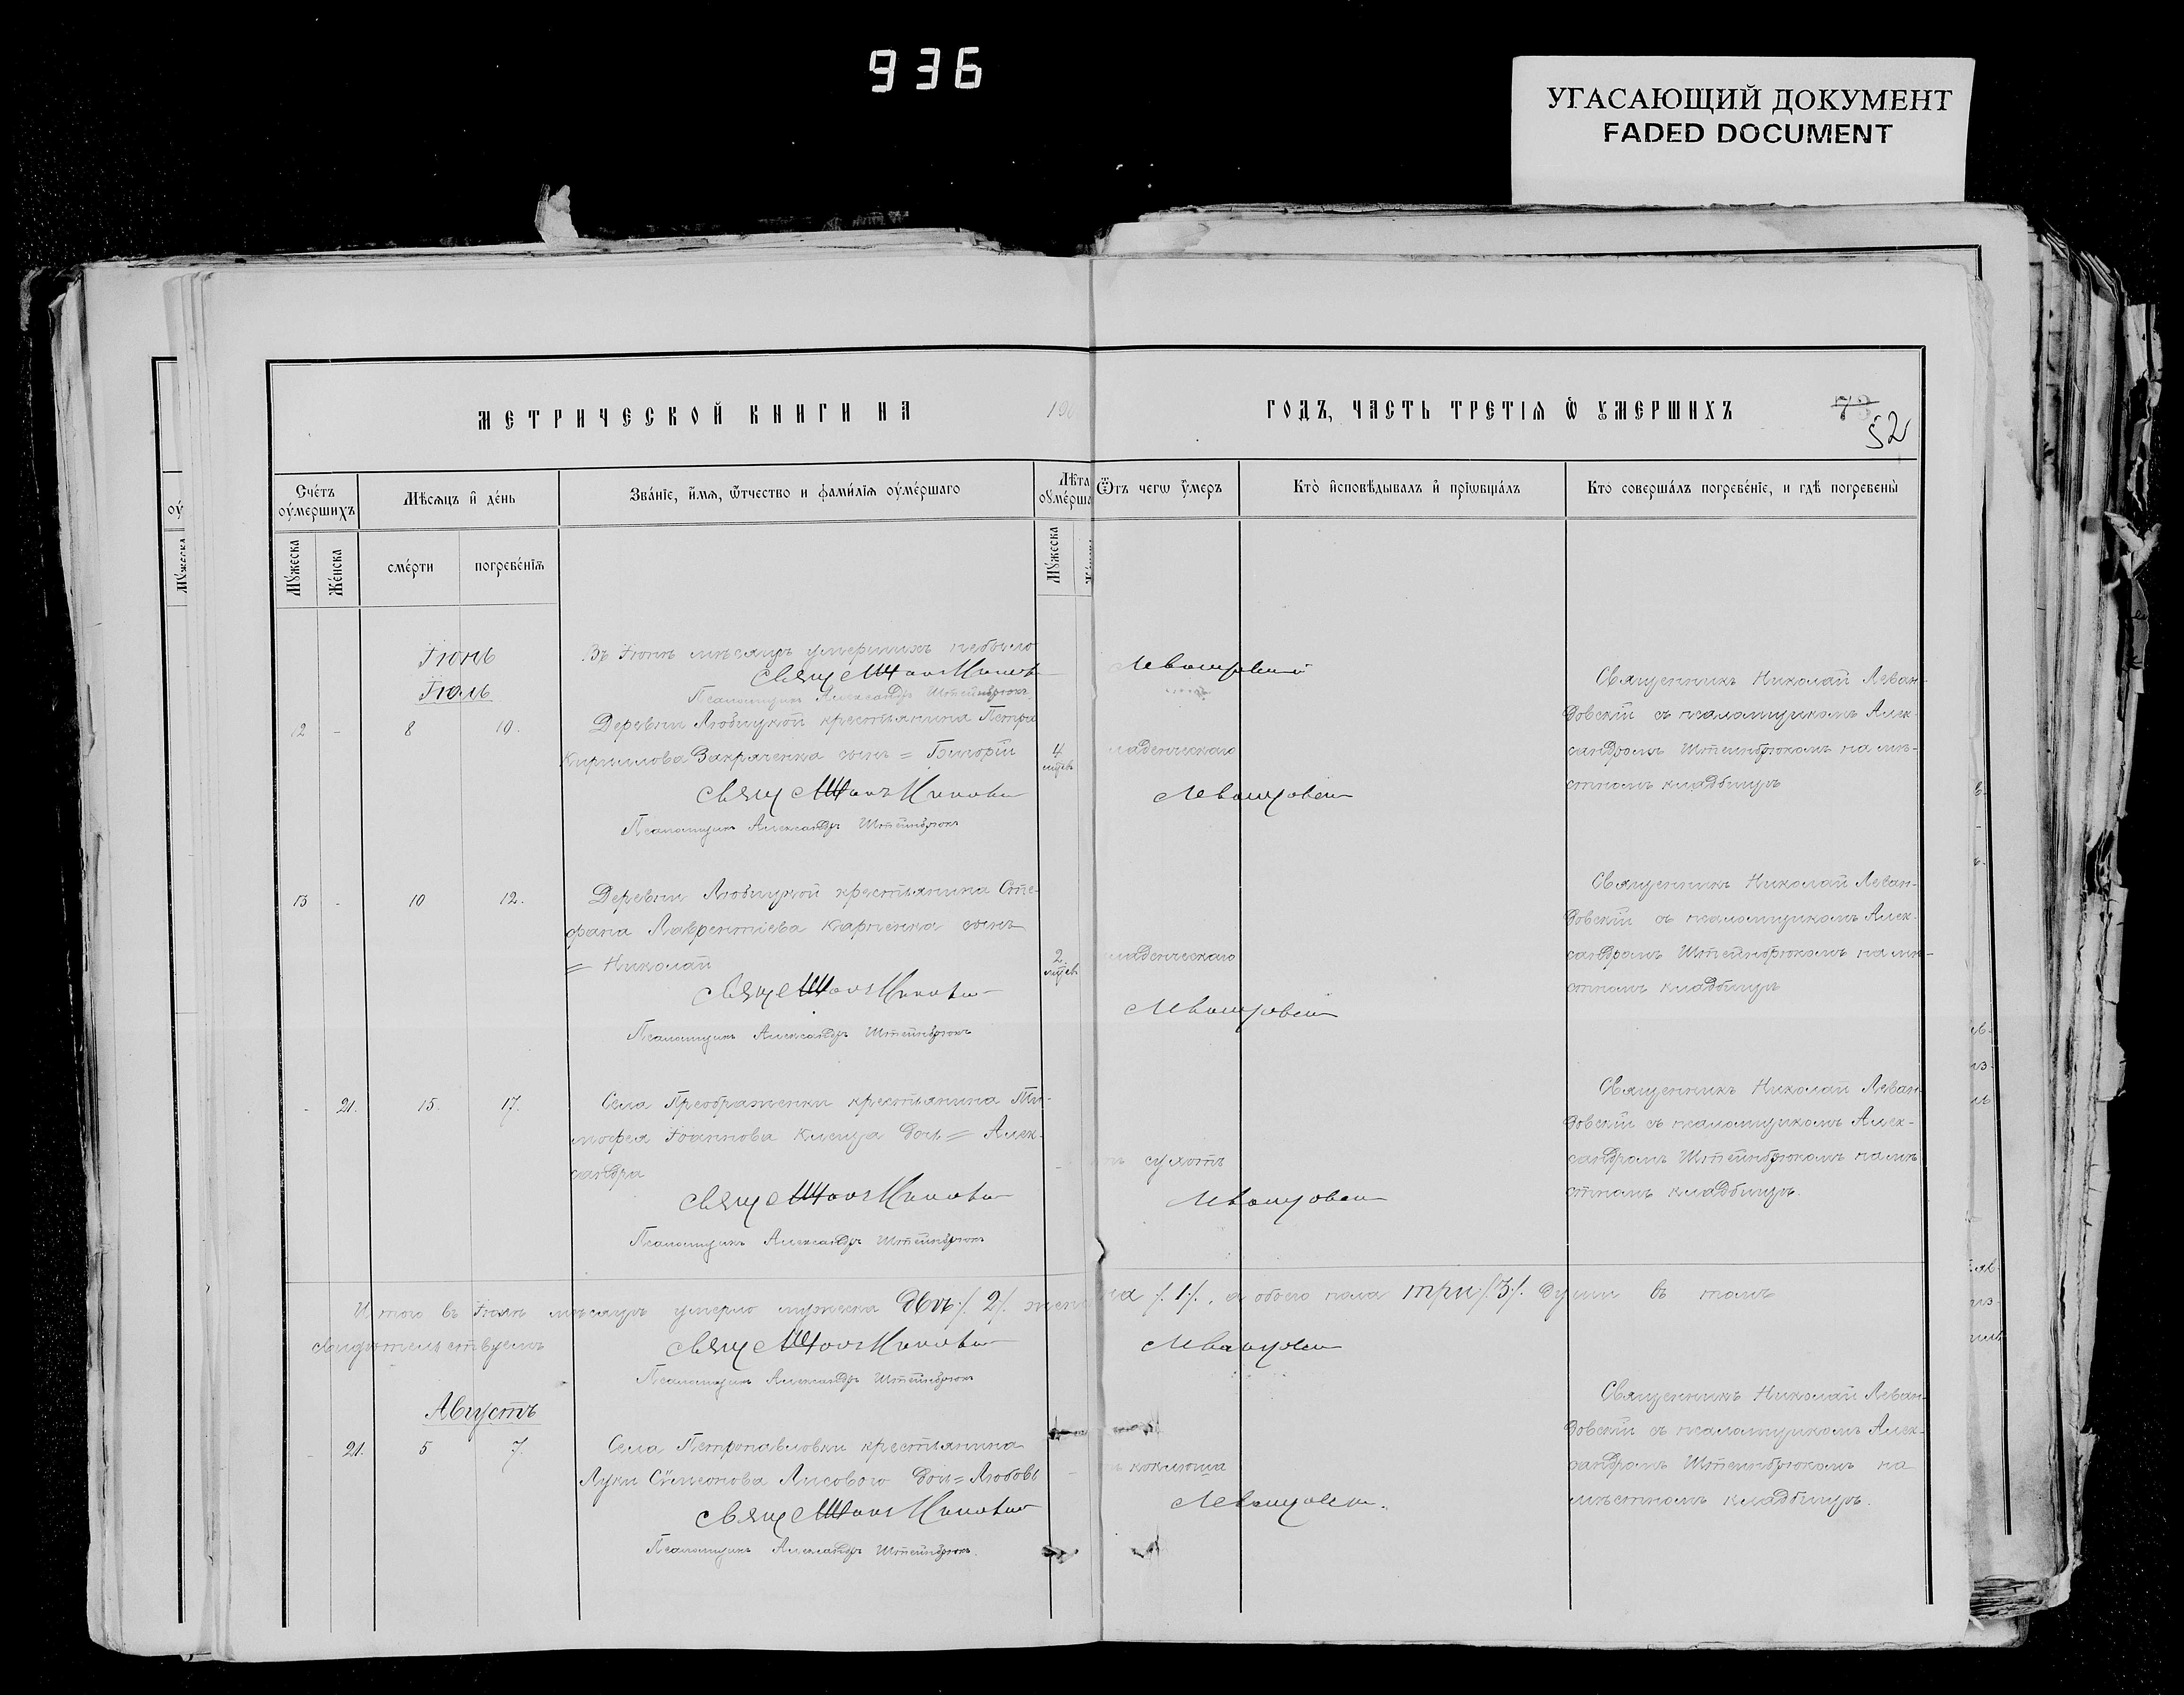 936
УГАСАЮЩИЙ ДОКУМЕНТ
FADED DOCUMENT
МЕТРИЧЕСКОЙ КНИГИ НА 190
ГОДЪ, ЧАСТЬ ТРЕТІЯ Ѡ ОУМЕРШИХЪ
73
52
Счетъ оумершихъ
Мѣсяцъ и день
Званіе, имя, отчество и фамилія оумершаго
Лѣта оумерша
Ѿтъ чего оумеръ
Кто исповѣдывалъ и пріобщалъ
Кто совершалъ погребеніе, и гдѣ погребены
Мужеска
Женска
смерти
погребенія
Мужеска
Іюнь
Въ Іюнѣ мѣсяцѣ умершихъ небыло
Свящ Николай Левандовскій
Псаломщикъ Александръ Штейнбрюкъ
Іюль
12 - 8 10.
Деревни Любицкой крестьянина Петра
Кириллова Закряченка сынъ =
4 мцевъ
младенческаго
Свящ
Псаломщикъ Александръ Штейнбрюкъ
Священникъ Николай Леван-
довскій съ псаломщикомъ Алек-
сандромъ Штейнбрюкомъ на мѣ-
стномъ кладбищѣ
13 - 10 12.
Деревни Любицкой крестьянина Сте-
фана Лаврентіева Карпенка сынъ
= Николай
2. мцевъ
младенческаго
Свящ
Псаломщикъ Александръ Штейнбрюкъ
Священникъ Николай Леван-
довскій съ псаломщикомъ Алек-
сандромъ Штейнбрюкомъ на мѣ-
стномъ кладбищѣ
- 21. 15. 17.
Села Преображенки крестьянина Ти-
мофея Іоаннова дочь = Алек-
сандра
сухотъ
Свящ
Псаломщикъ Александръ Штейнбрюкъ
Священникъ Николай Леван-
довскій съ псаломщикомъ Алек-
сандромъ Штейнбрюкомъ на мѣ-
стномъ кладбищѣ.
Итого въ Іюлѣ мѣсяцѣ умерло мужеска два /. 2/. женска /. 1/., а обоего пола три /. 3/. души въ томъ
свидѣтельствуемъ
Свящ
Псаломщикъ Александръ Штейнбрюкъ
Августъ
- 21. 5 7.
Села Петропавловки крестьянина
Луки Сѵмеонова Лисового дочь = Любовь
коклюша
Свящ
Псаломщикъ Александръ Штейнбрюкъ.
Священникъ Николай Леван-
довскій съ псаломщикомъ Алек-
сандромъ Штейнбрюкомъ на
мѣстномъ кладбищѣ.